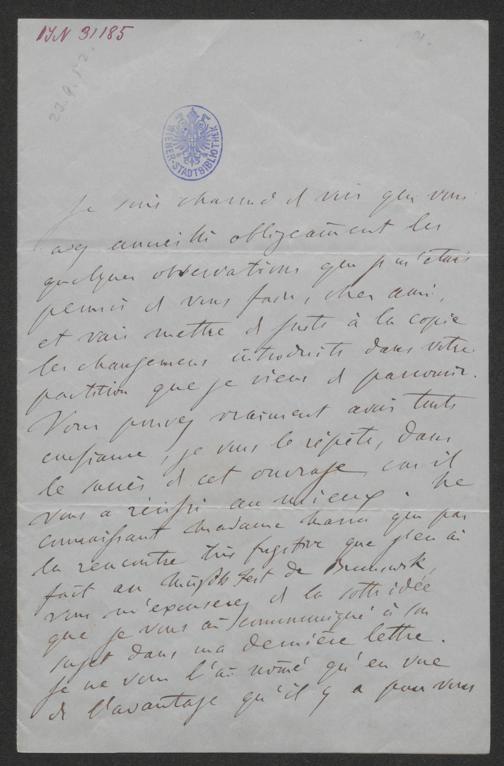 IJN 31185
WIENER-STADTBIBLIOTHEK
Je suis charmé d voir que vous
avez accueilli obligeamment les
quelques observations que je m'étais
permis d vous faire, cher ami,
et vais mettre d suite à la copie
les changemens introduits dans votre
partition que je viens d parcourir.
Vous pouvez vraiment avoir toute
confiance, je vous le répète, dans
le succès d cet ouvrage, car il
vous a réussi au mieux. Ne
connaissant Madame que par
la rencontre très fugitive que j'en ai
fait au Musikfest de Brunswik,
vous m'excuserez d la sotte idée
que je vous ai communiqué à son
sujet dans ma dernière lettre.
Je ne vous l'ai nomé qu'en vue
de l'avantage qu'il y a pour vous